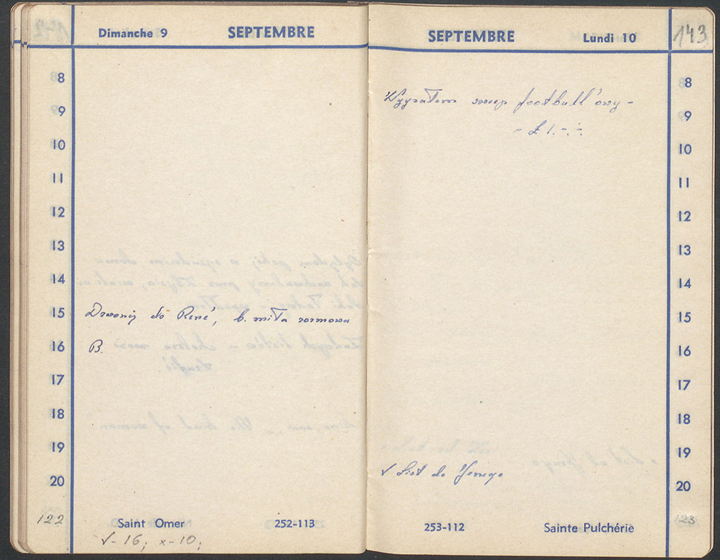 Dimanche 9 SEPTEMBRE
8
9
10
11
12
13
14
15 Dzwonię do René, b. miła rozmowa
16 B.
17
18
19
20
122 Saint Omer 252-113
V-16; x-10;
SEPTEMBRE Lundi 10 143
Wygrałem sweep football'owy -
- £1.-.-
8
9
10
11
12
13
14
15
16
17
18
19
20
V List do Jerzego
253-112 Sainte Pulchérie 123